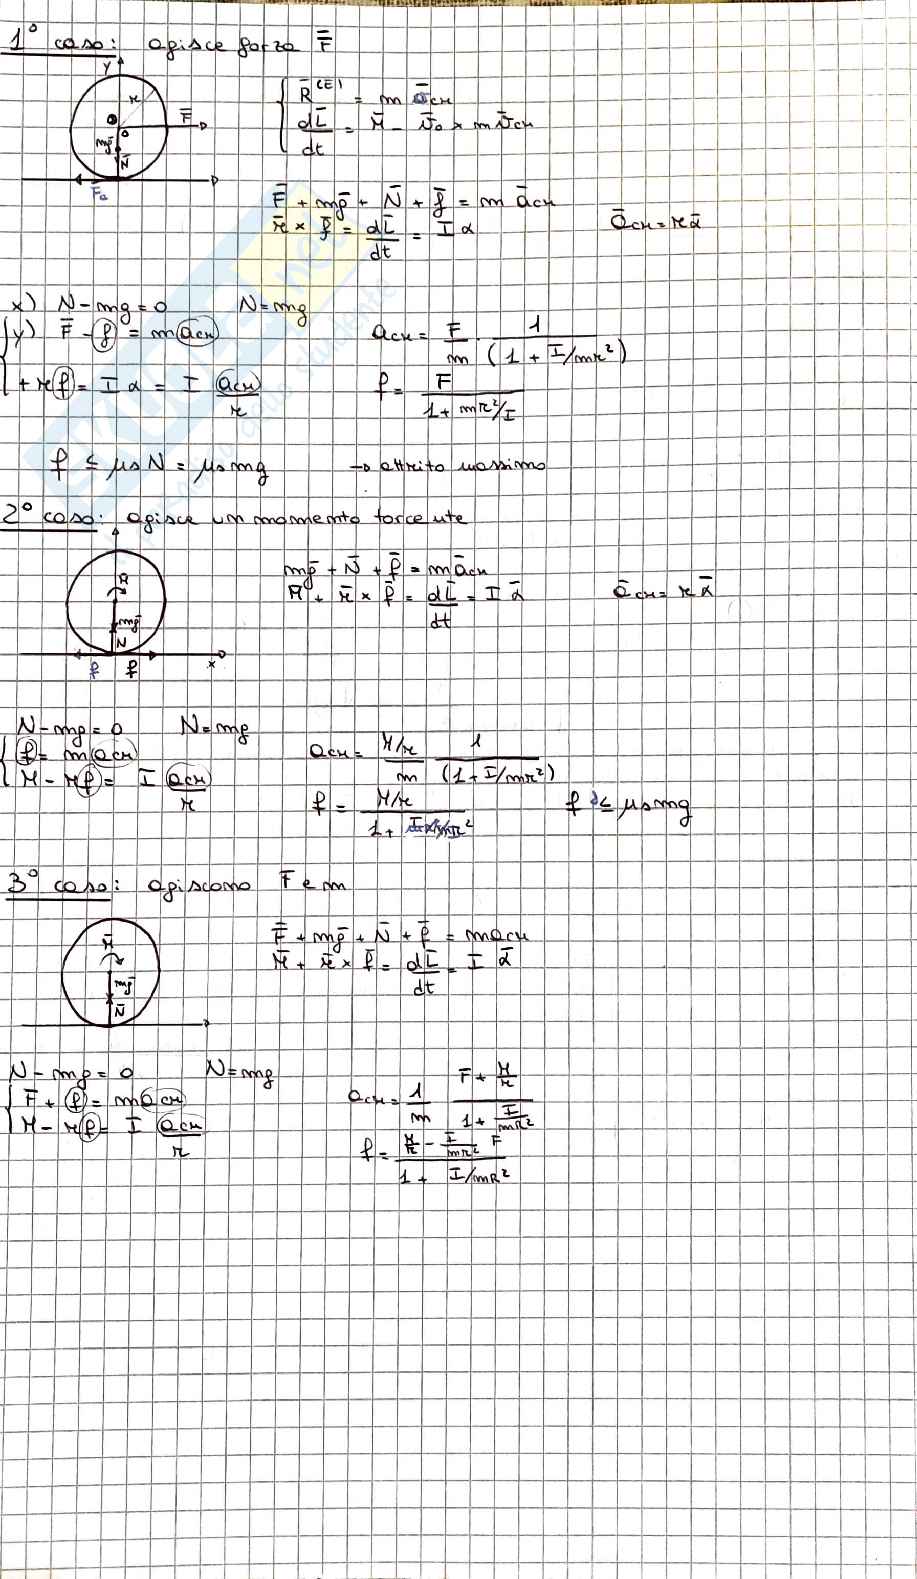 1° caso: agisce forza F̄
y
r
F̄
o
mḡ
N̄
Fa
R̄^(E) = m ā_CM
dL̄/dt = M̄ - v̄o × m v̄_CM
F̄ + mḡ + N̄ + f̄ = m ā_CM
r̄ × f̄ = dL̄/dt = I α
ā_CM = r ᾱ
x) N - mg = 0 N = mg
y) F̄ - f = m a_CM
a_CM = F/m · 1/(1 + I/mr²)
+ r f = I α = I a_CM/r
f = F/(1 + mr²/I)
f ≤ μs N = μs mg → attrito massimo
2° caso: agisce un momento torcente
M̄
mḡ
N
f f x
mḡ + N̄ + f̄ = m ā_CM
M̄ + r̄ × f̄ = dL̄/dt = I ᾱ
ā_CM = r ᾱ
N - mg = 0 N = mg
f = m a_CM
M - r f = I a_CM/r
a_CM = M/r/m 1/(1 + I/mr²)
f = M/r/(1 + I/mr²)
f ≤ μs mg
3° caso: agiscono F e m
M̄
mḡ
N̄
F̄ + mḡ + N̄ + f̄ = m a_CM
M̄ + r̄ × f̄ = dL̄/dt = I ᾱ
N - mg = 0 N = mg
F̄ + f = m a_CM
M - r f = I a_CM/r
a_CM = 1/m (F + M/r)/(1 + I/mR²)
f = (M/r - I/mr² F)/(1 + I/mR²)